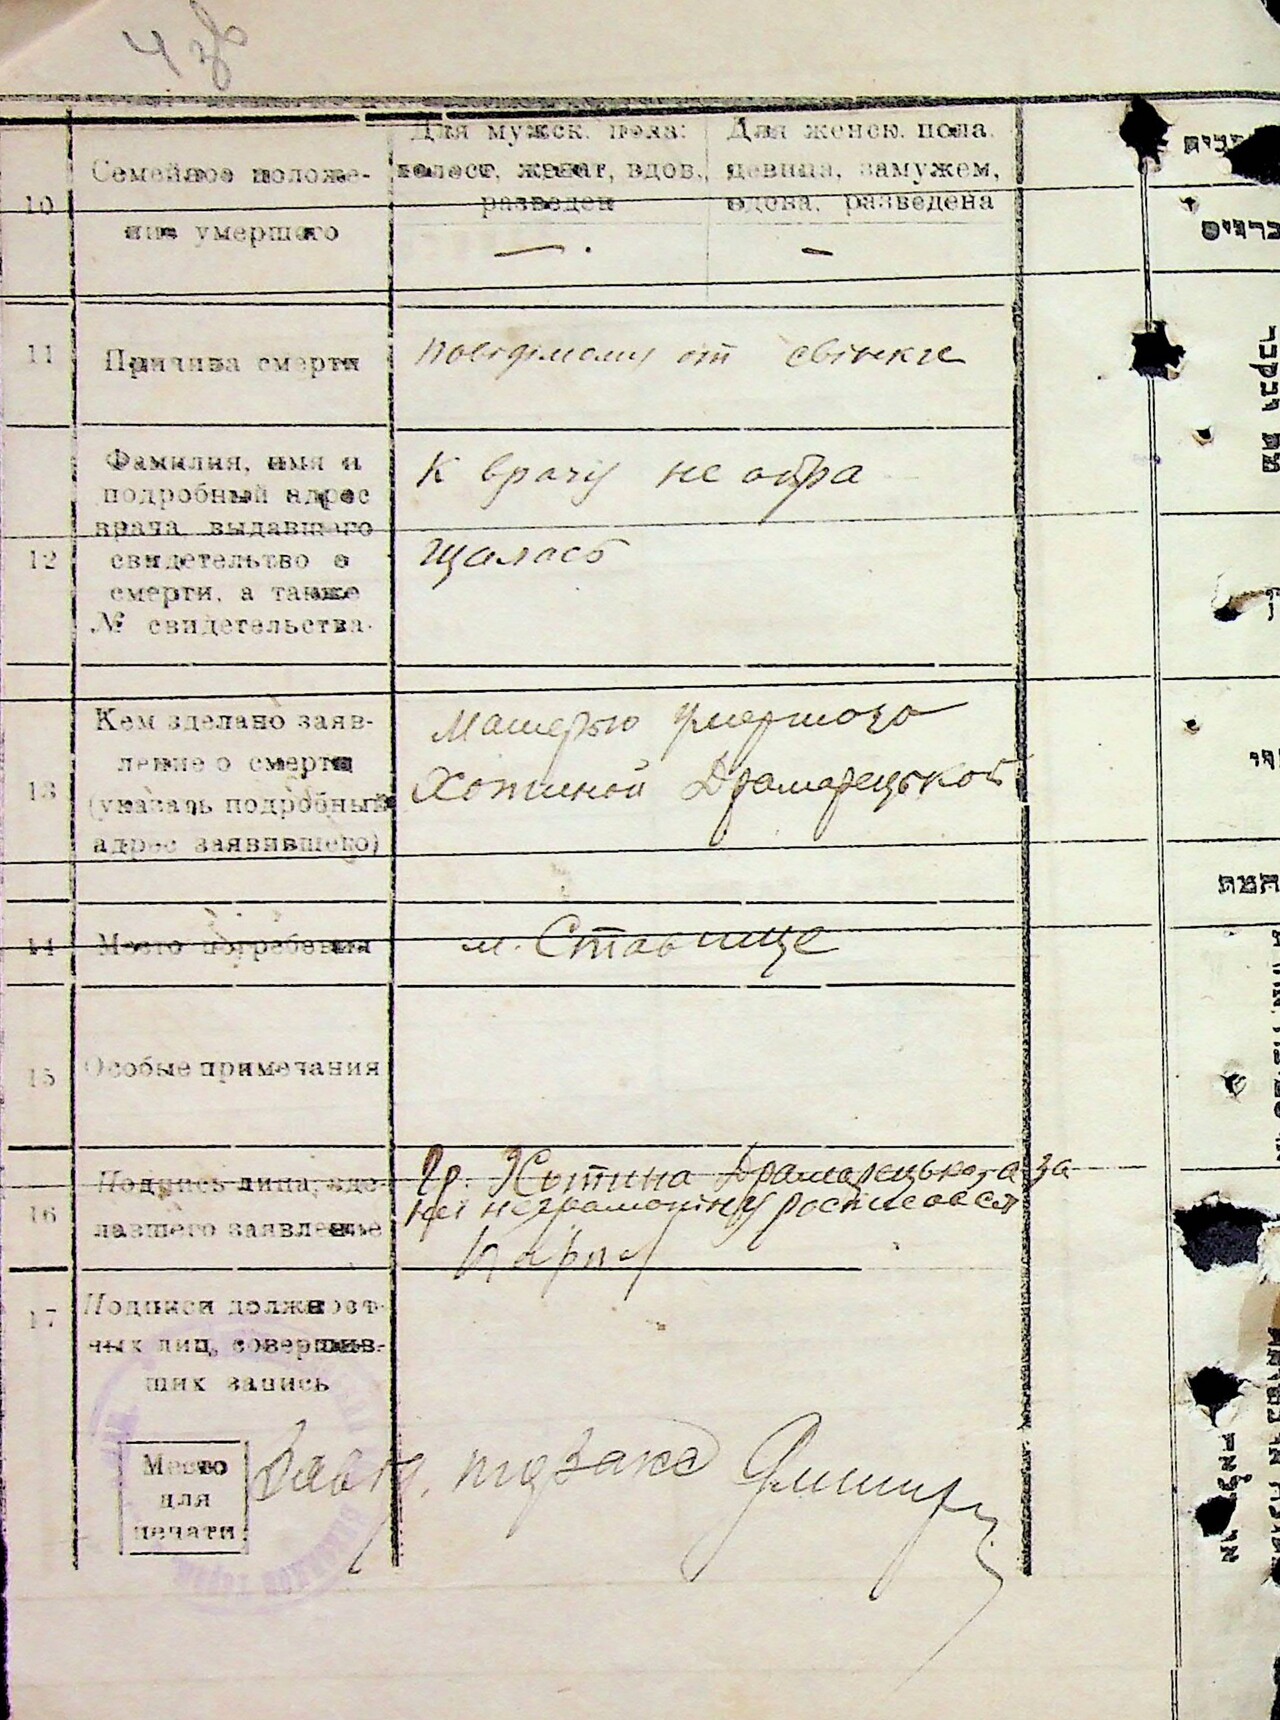 10
Семейное положе-
ние умершего
Для мужск. пола:
холост, женат, вдов,
разведен
Для женск. пола.
девица, замужем,
вдова, разведена
— .
—
11
Причина смерти
повидимому от свинки
12
Фамилия, имя и
подробный адрес
врача, выдавшего
свидетельство о
смерти, а также
№ свидетельства.
К врачу не обра
щалась
13
Кем зделано заяв-
ление о смерти
(указать подробный
адрес заявившего)
Матерью умершого
Хотиной Драмарецькой
14
Место погребения
м. Ставище
15
Особые примечания
16
Подпись лица, зде-
лавшего заявление
Гр. Хотина Драмарецька, а за
неграмотну росписался
Карп
17
Подписи должност-
ных лиц, совершив-
ших запись
Место
для
печати
Завед.